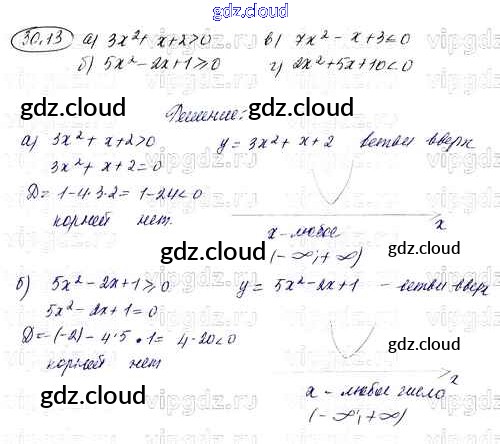 gdz.cloud
30.13 а) 3x² + x + 2 > 0 в) 7x² - x + 3 ≤ 0
б) 5x² - 2x + 1 ≥ 0 г) 2x² + 5x + 10 < 0
gdz.cloud gdz.cloud
Решение:
а) 3x² + x + 2 > 0 y = 3x² + x + 2 ветви вверх
3x² + x + 2 = 0
D = 1 - 4·3·2 = 1 - 24 < 0
корней нет.
x
x - любое
(-∞; +∞)
gdz.cloud gdz.cloud
б) 5x² - 2x + 1 ≥ 0 y = 5x² - 2x + 1 - ветви вверх
5x² - 2x + 1 = 0
D = -(-2) - 4·5·1 = 4 - 20 < 0
корней нет
x
gdz.cloud gdz.cloud
x - любое число
(-∞; +∞)
gdz.cloud